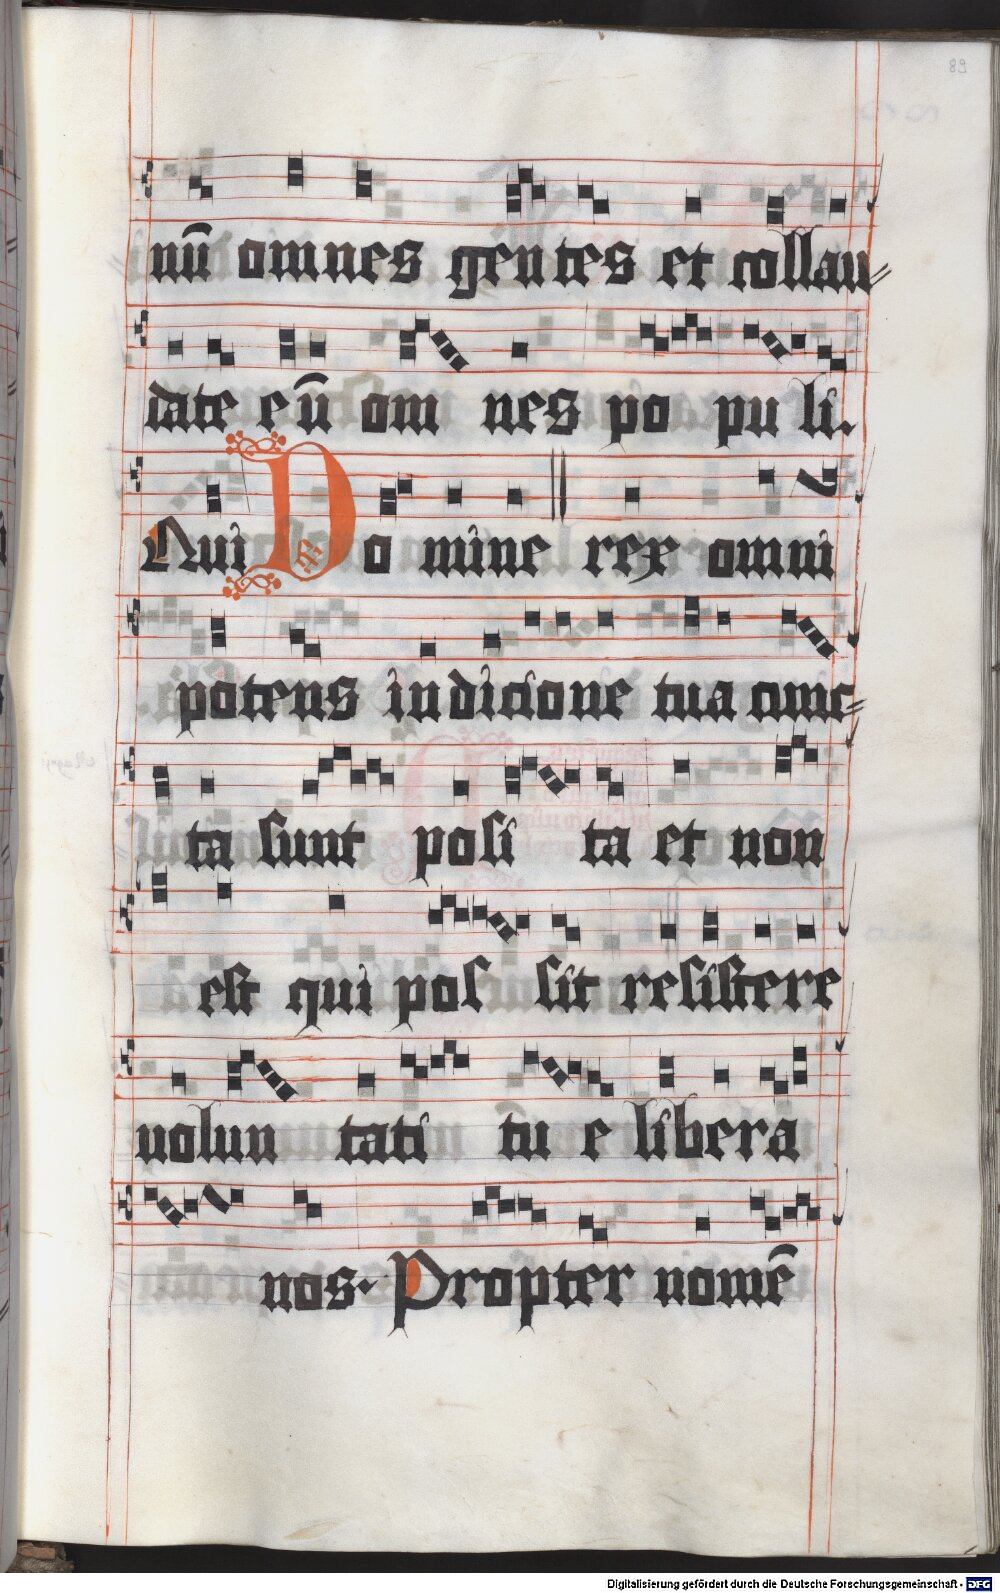 89
nū omnes gentes et collau
date eū om nes po pu li.
Qui Do mine rex omni
potens in dicione tua cunc
ta sunt posi ta et non
est qui pos sit resistere
uolun tati tu e libera
nos. Propter nomē
Digitalisierung gefördert durch die Deutsche Forschungsgemeinschaft - DFG